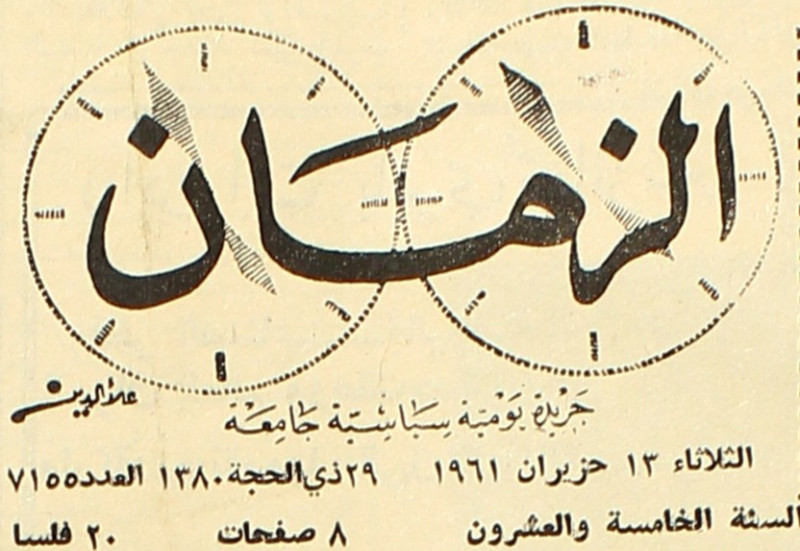 الزمان
علاءالدين
جَرِيْدَة يَوْمِيَّة سِيَاسِيَّة جَامِعَة
الثلاثاء ١٣ حزيران ١٩٦١ ٢٩ ذي الحجة ١٣٨٠ العدد ٧١٥٥
السنة الخامسة والعشرون ٨ صفحات ٢٠ فلسا